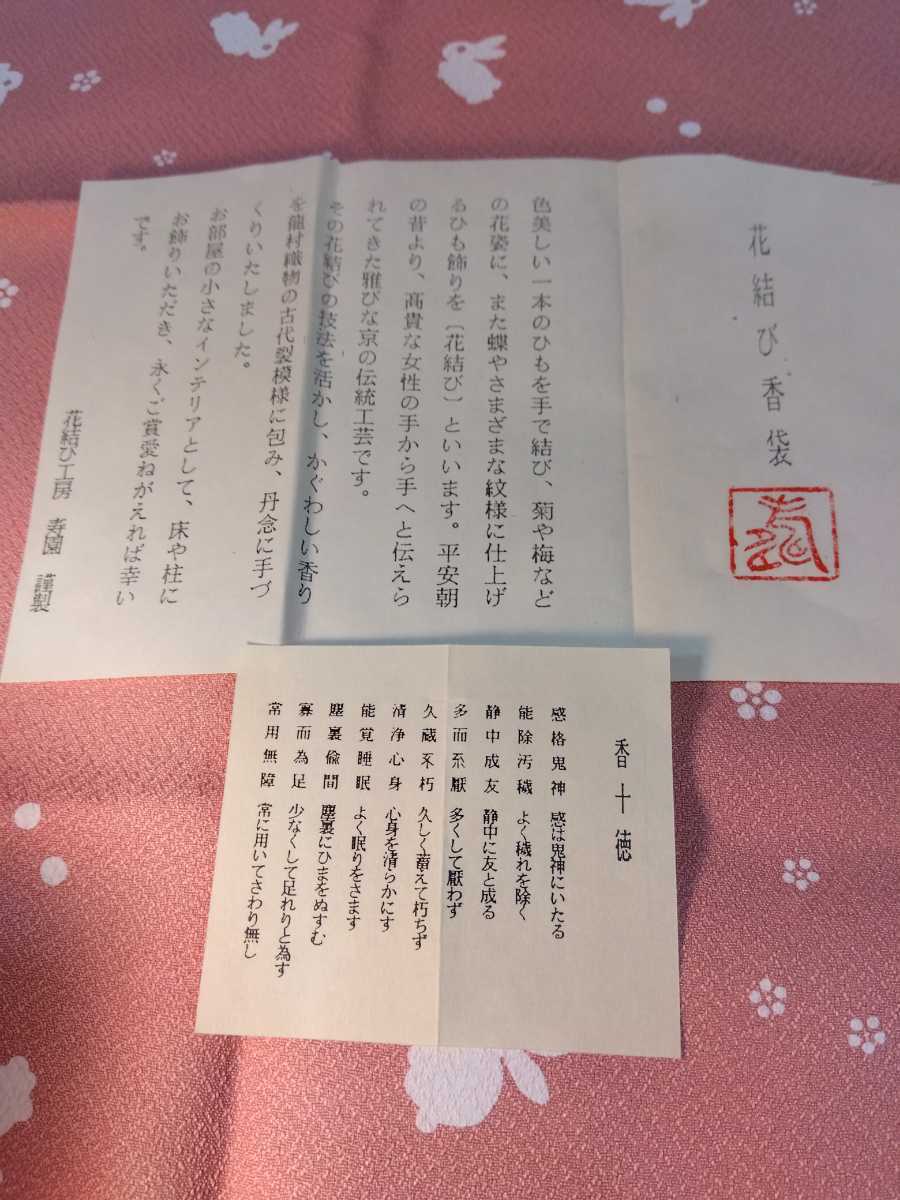 花結び香袋
色美しい一本のひもを手で結び、菊や梅など
の花姿に、また蝶やさまざまな紋様に仕上げ
るひも飾りを〔花結び〕といいます。平安朝
の昔より、高貴な女性の手から手へと伝えら
れてきた雅びな京の伝統工芸です。
その花結びの技法を活かし、かぐわしい香り
を龍村織物の古代裂模様に包み、丹念に手づ
くりいたしました。
お部屋の小さなインテリアとして、床や柱に
お飾りいただき、永くご賞愛ねがえれば幸い
です。
花結び工房 寿園 謹製
香十徳
感格鬼神 感は鬼神にいたる
能除汚穢 よく穢れを除く
静中成友 静中に友と成る
多而不厭 多くして厭わず
久蔵不朽 久しく蓄えて朽ちず
清浄心身 心身を清らかにす
能覚睡眠 よく眠りをさます
塵裏偸間 塵裏にひまをぬすむ
寡而為足 少なくして足れりと為す
常用無障 常に用いてさわり無し